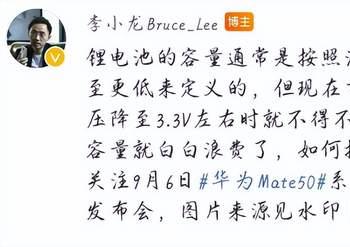 李小龙Bruce_Lee 博主
锂电池的容量通常是按照
至更低来定义的，但现在
压降至3.3V左右时就不得不
容量就白白浪费了，如何
关注9月6日#华为Mate50#系
发布会，图片来源见水印